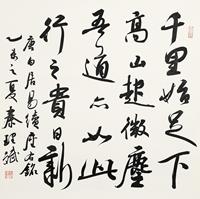 千里始足下
高山起微塵
吾道亦如此
行之貴日新
唐白居易續座右銘
之夏秦理斌